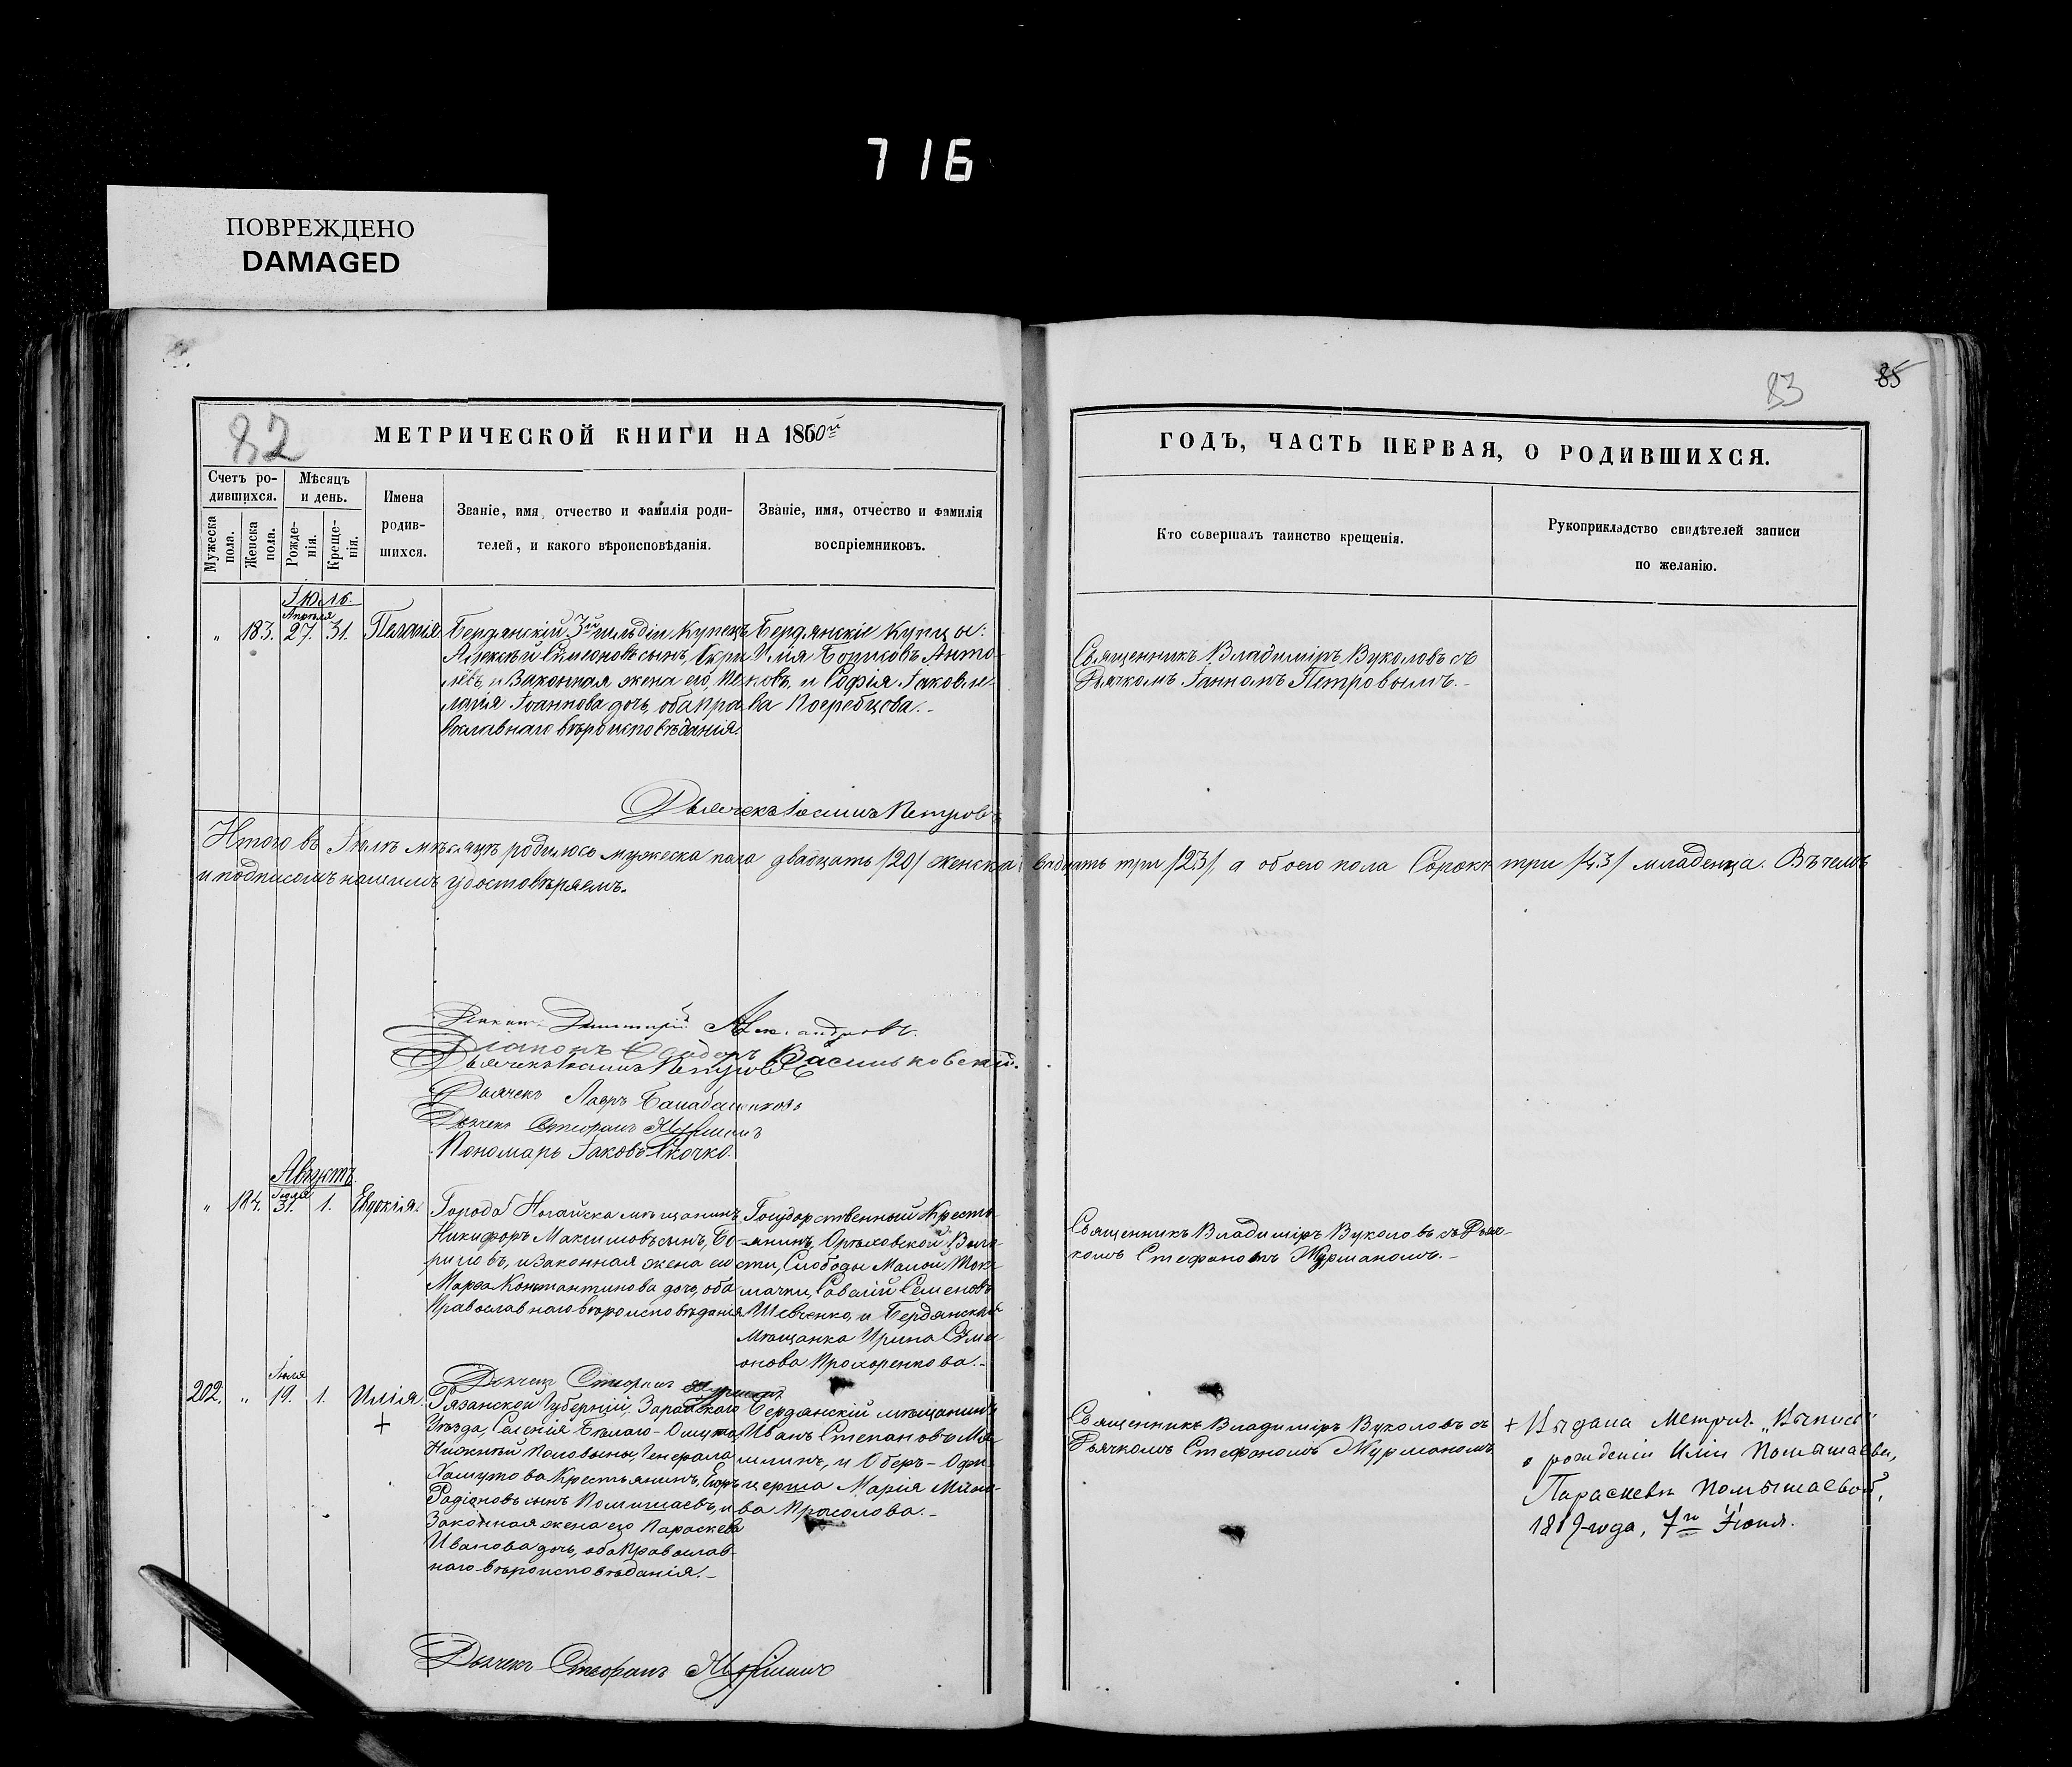 716
ПОВРЕЖДЕНО
DAMAGED
82
МЕТРИЧЕСКОЙ КНИГИ НА 1860й
Счетъ ро-
дившихся.
Мѣсяцъ
и день.
Мужеска
пола.
Женска
пола.
Рожде-
нія.
Креще-
нія.
Имена
родив-
шихся.
Званіе, имя, отчество и фамилія роди-
телей, и какого вѣроисповѣданія.
Званіе, имя, отчество и фамилія
воспріемниковъ.
83
85
ГОДЪ, ЧАСТЬ ПЕРВАЯ, О РОДИВШИХСЯ.
Кто совершалъ таинство крещенія.
Рукоприкладство свидѣтелей записи
по желанію.
Іюль.
Апрѣля
„ 183. 27. 31. Пелагія
Бердянскій 3й гильдіи Купецъ
Алексѣй Симеоновъ сынъ,
и Законная жена его, Пе-
лагія Іоаннова дочь, оба пра-
вославнаго вѣроисповѣданія.
Бердянскіе Купцы:
Илія Борисовъ Анто-
новъ, и Софія Іаковле-
ва Погребцова.
Священникъ Владиміръ Вуколовъ съ
Дьячкомъ Іанномъ Петровымъ.
Дьячекъ Іоаннъ Петровъ
Итого въ Іюлѣ мѣсяцѣ родилось мужеска пола двадцать /20/ женска двадцать три /23/, а обоего пола Сорокъ три /43/ младенца. Въ чемъ
и подписомъ нашимъ удостовѣряемъ.
Димитрій Александровъ.
Діаконъ Ѳеодоръ Васильковскій.
Дьячекъ Іоаннъ Петровъ
Дьячекъ Лавръ Балабаненковъ
Дьячекъ Стефанъ Мурманъ
Пономарь Іаковъ
Августъ.
Іюля
„ 184. 31. 1. Евдокія.
Города Ногайска мѣщанинъ
Никифоръ Максимовъ сынъ, Бо-
рисовъ, и законная жена его
Марѳа Константинова дочь, оба
Православнаго вѣроисповѣданія
Государственный Кресть-
янинъ, Орѣховской Воло-
сти, Слободы Малой Ток-
мачки, Савелій Семеновъ
Шевченко, и Бердянская
Мѣщанка Ирина Симе-
онова Прохоренкова.
Священникъ Владиміръ Вуколовъ съ Дьяч-
комъ Стефаномъ Мурманомъ.
Дьячекъ Стефанъ Мурманъ
Іюля
202. „ 19. 1. Илія.
+
Рязанской Губерніи, Зарайскаго
Уѣзда, Селенія Бѣлаго-Омута,
Нижней половины, Генерала
Хомутова Крестьянинъ, Егоръ
Радіоновъ сынъ Помышаевъ, и
Законная жена его Параскева
Иванова дочь, оба Православ-
наго вѣроисповѣданія.
Бердянскій мѣщанинъ
Иванъ Степановъ Ма-
шлинъ, и Оберъ-Офи-
церша Марія
Просолова.
Священникъ Владиміръ Вуколовъ съ
Дьячкомъ Стефаномъ Мурманомъ
+ Выдана Метрич. „Выпись"
о рожденіи Иліи Помышаева,
Параскевѣ Помышаевой,
7го Іюня.
Дьячекъ Стефанъ Мурманъ